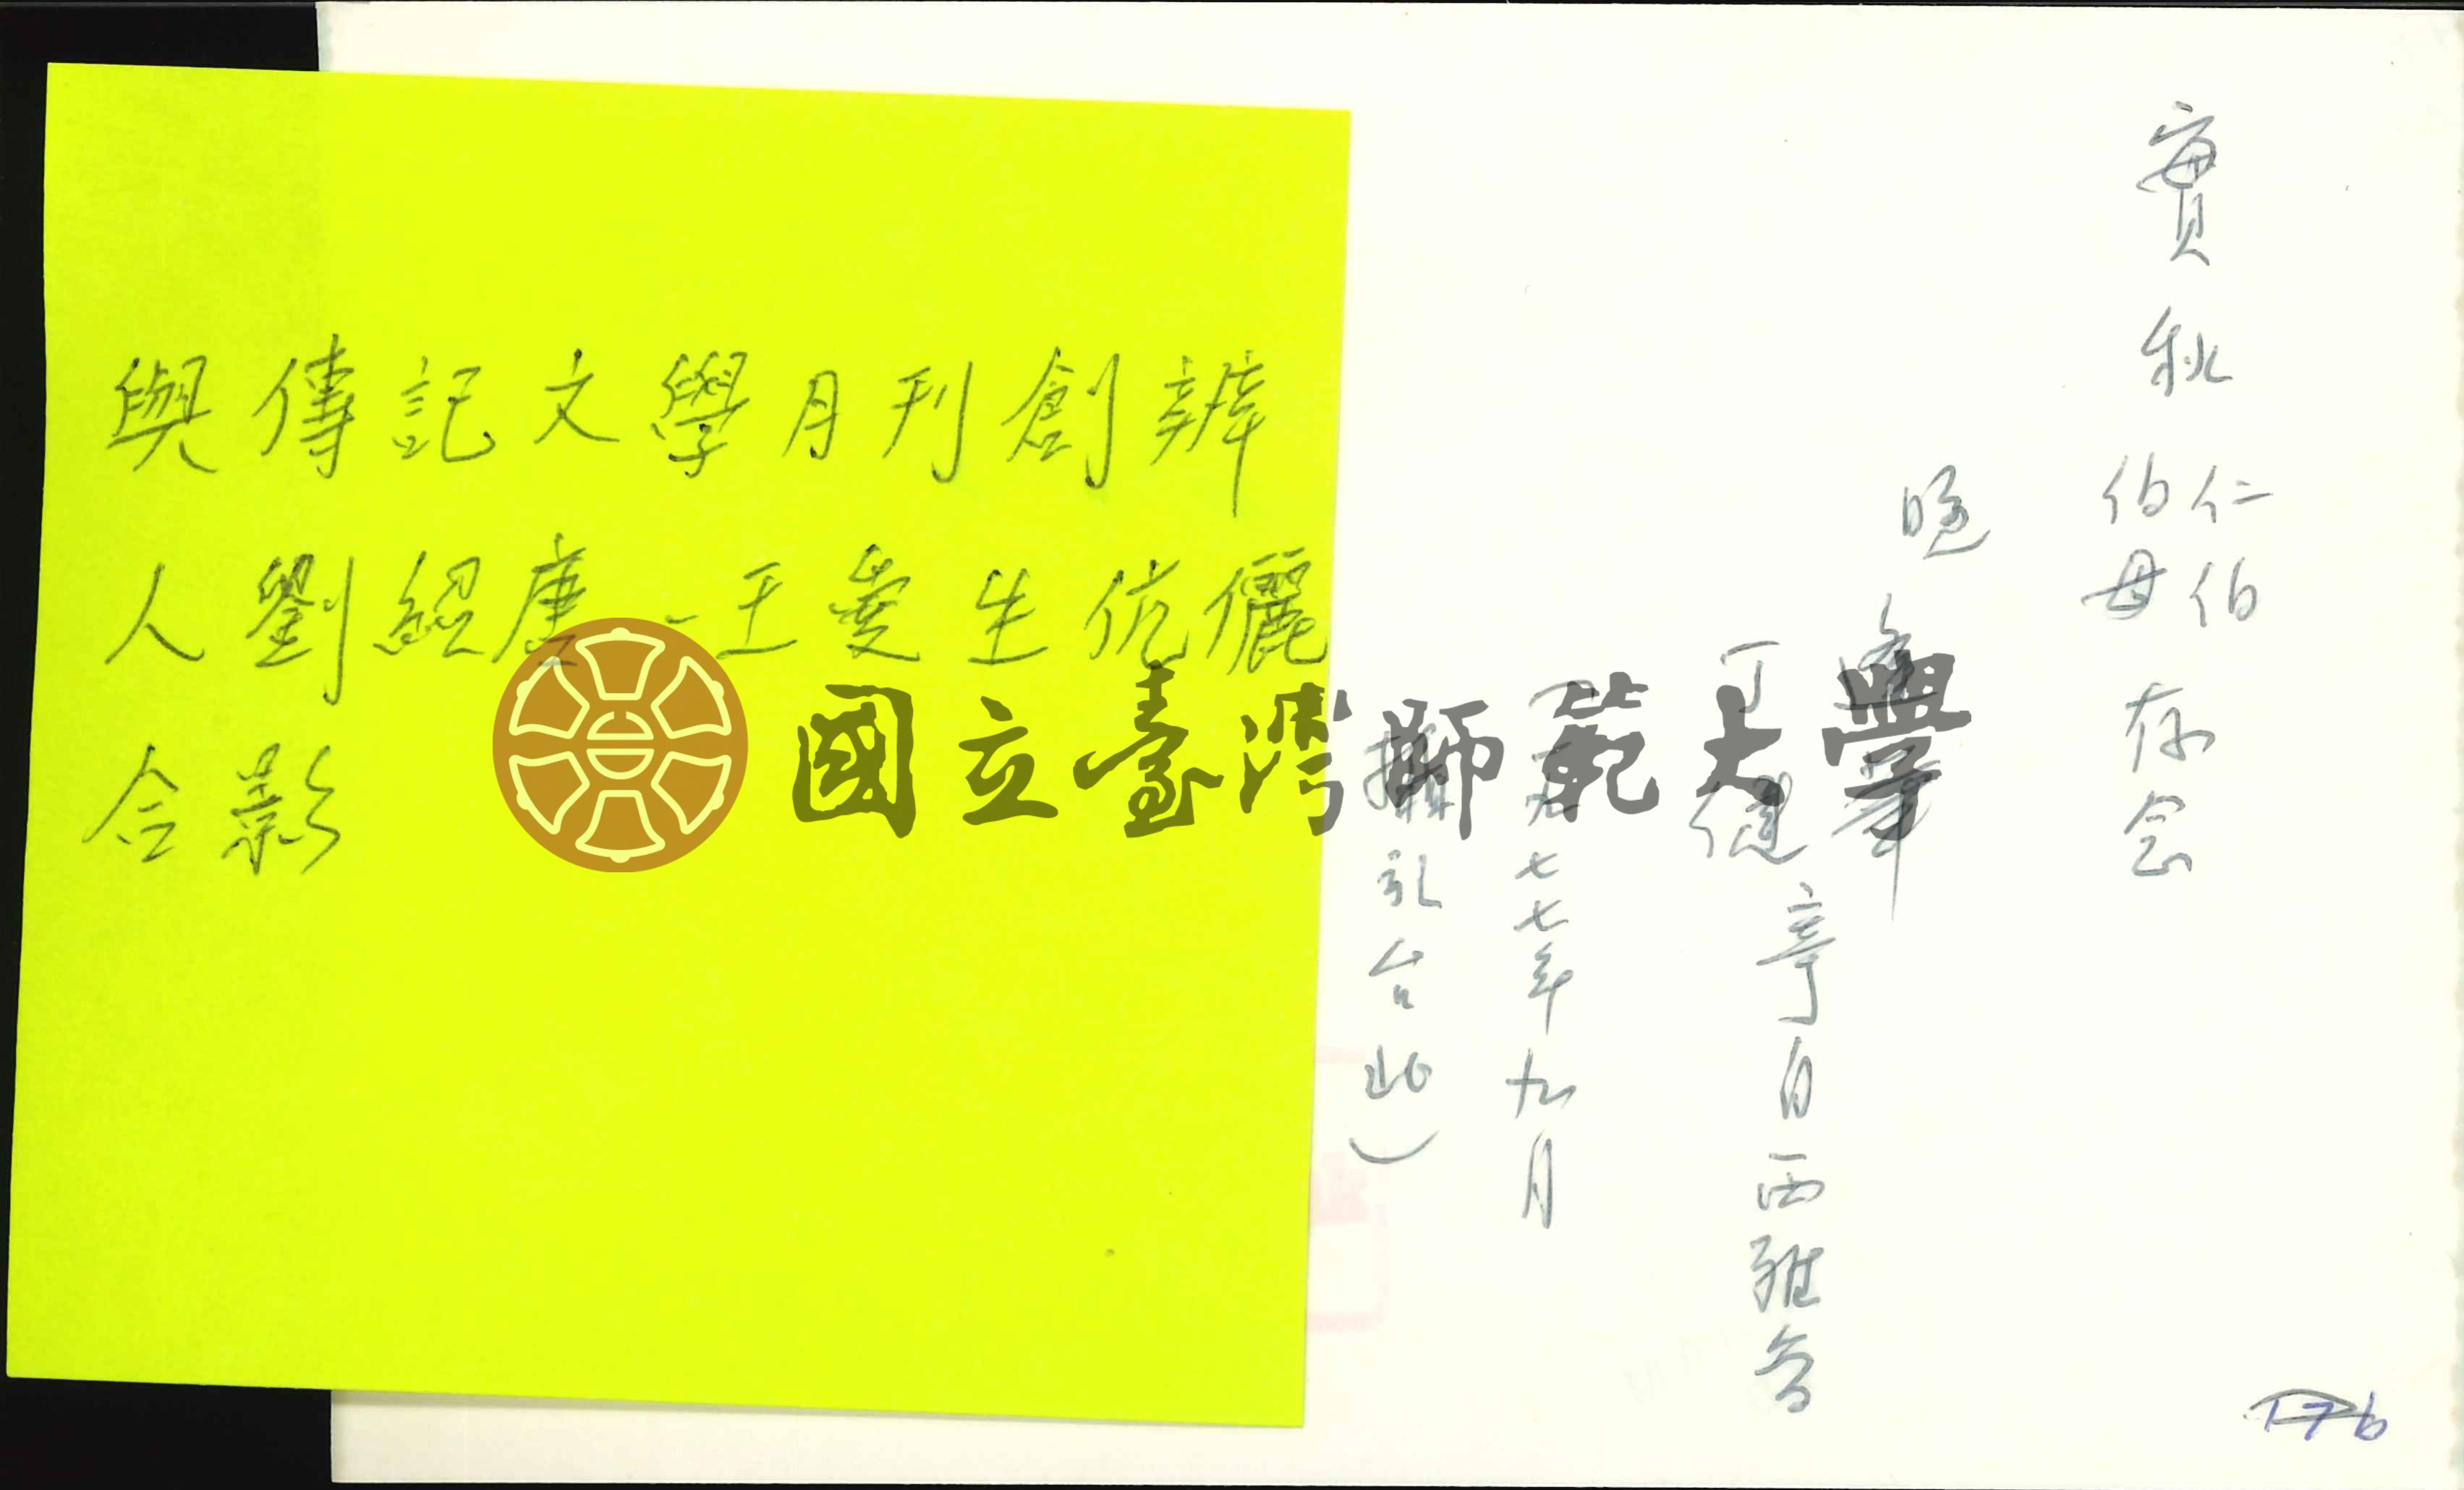 實秋 仁伯 伯母 存念
晚
寄自西雅圖
一九七七年九月
攝於台北）
與傳記文學月刊創辦
人劉紹唐-王愛生伉儷
合影
國立臺灣師範大學
176